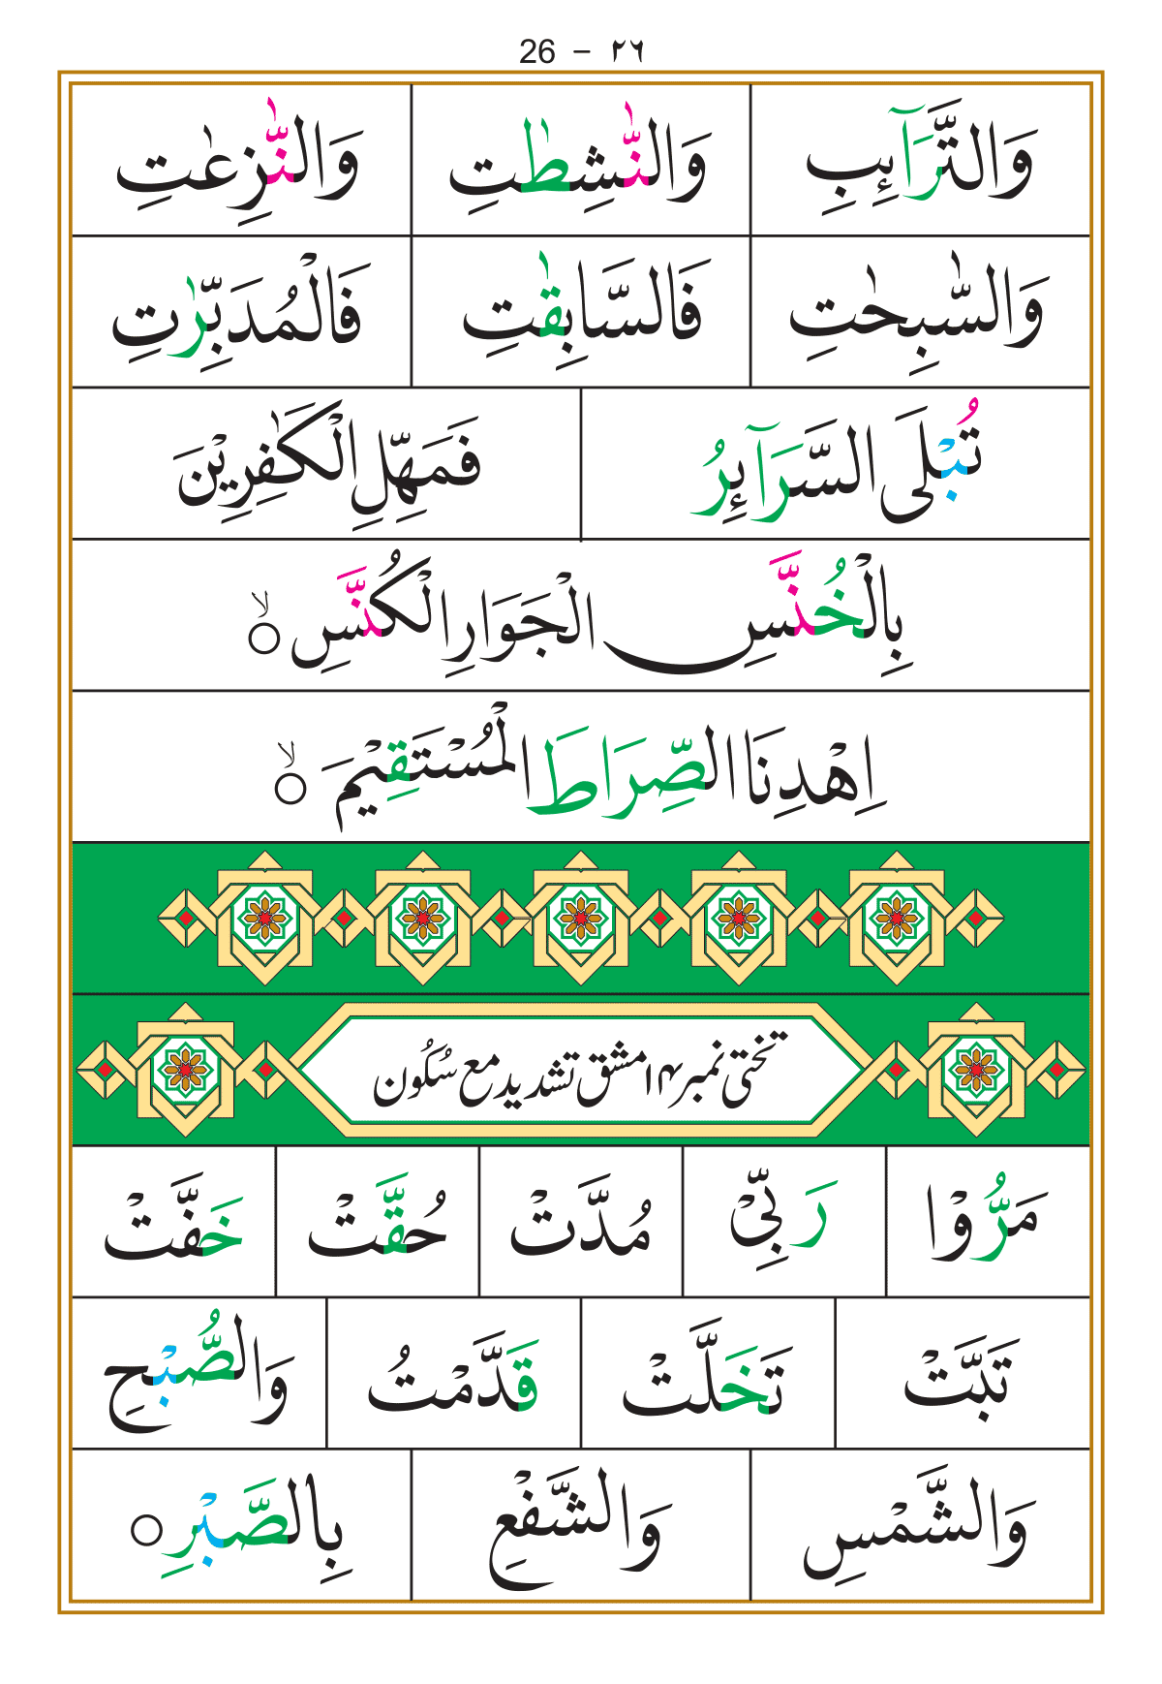 26 – ٢٦
وَالتَّرَآئِبِ وَالنّٰشِطٰتِ وَالنّٰزِعٰتِ
وَالسّٰبِحٰتِ فَالسَّابِقٰتِ فَالْمُدَبِّرٰتِ
تُبْلَى السَّرَآئِرُ فَمَهِّلِ الْكٰفِرِيْنَ
بِالْخُنَّسِ الْجَوَارِ الْكُنَّسِ ۙ○
اِهْدِنَا الصِّرَاطَ الْمُسْتَقِيْمَ ۙ○
تختی نمبر ۱۴ مشق تشدید مع سُکُون
مَرُّوْا رَبِّيْ مُدَّتْ حُقَّتْ خَفَّتْ
تَبَّتْ تَخَلَّتْ قَدَّمْتُ وَالصُّبْحِ
وَالشَّمْسِ وَالشَّفْعِ بِالصَّبْرِ ○